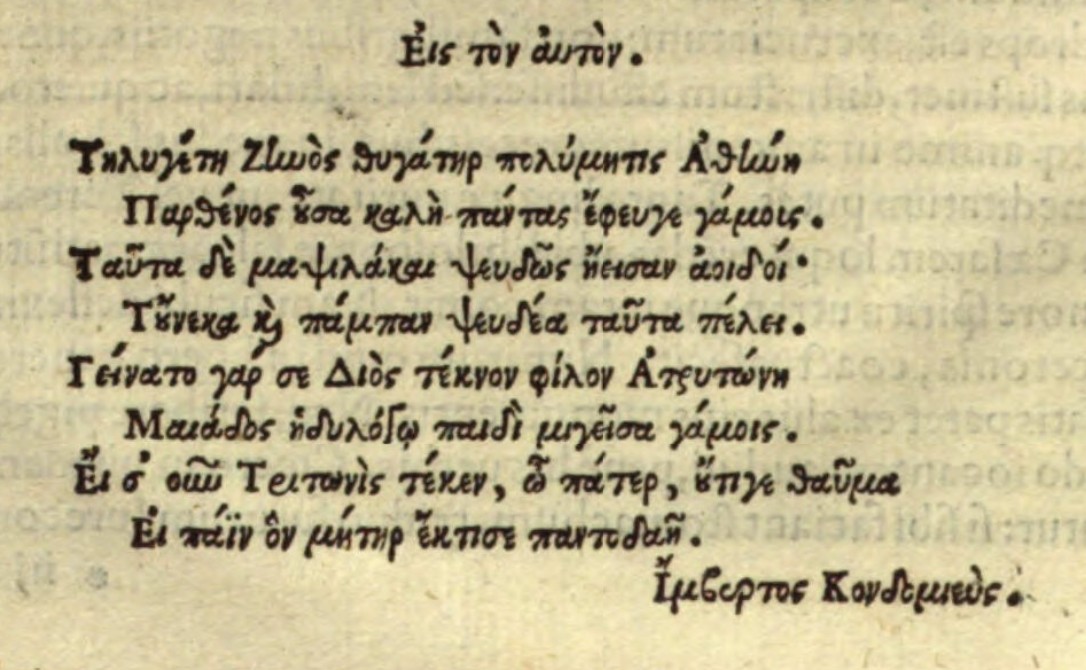 Ἐις τὸν ἀυτὸν.
Τηλυγέτη Ζἰωὸς θυγάτηρ πολύμητις Ἀθίωη
Παρθένος ȣ̓͂σα καλὴ πάντας ἔφευγε γάμοις.
Ταῦτα δὲ μαψιλάκαι ψευδῶς ἤεισαν ἀοιδοί·
Τȣ̓́νεκα ϗ πάμπαν ψευδέα ταῦτα πέλει.
Γείνατο γάρ σε Διὸς τέκνον φίλον Ἀτρυτώνη
Μαιάδος ἡδυλόγῳ παιδὶ μιγεῖσα γάμοις.
Ἐ͂ι σ' οιῶ Τριτωνὶς τέκεν, ὦ πάτερ, ȣ̓́τιγε θαῦμα
Ἐι πάϊν ὃν μήτηρ ἔκτισε παντοδαῆ.
Ἴμβερτος Κονδεμιεὺς.